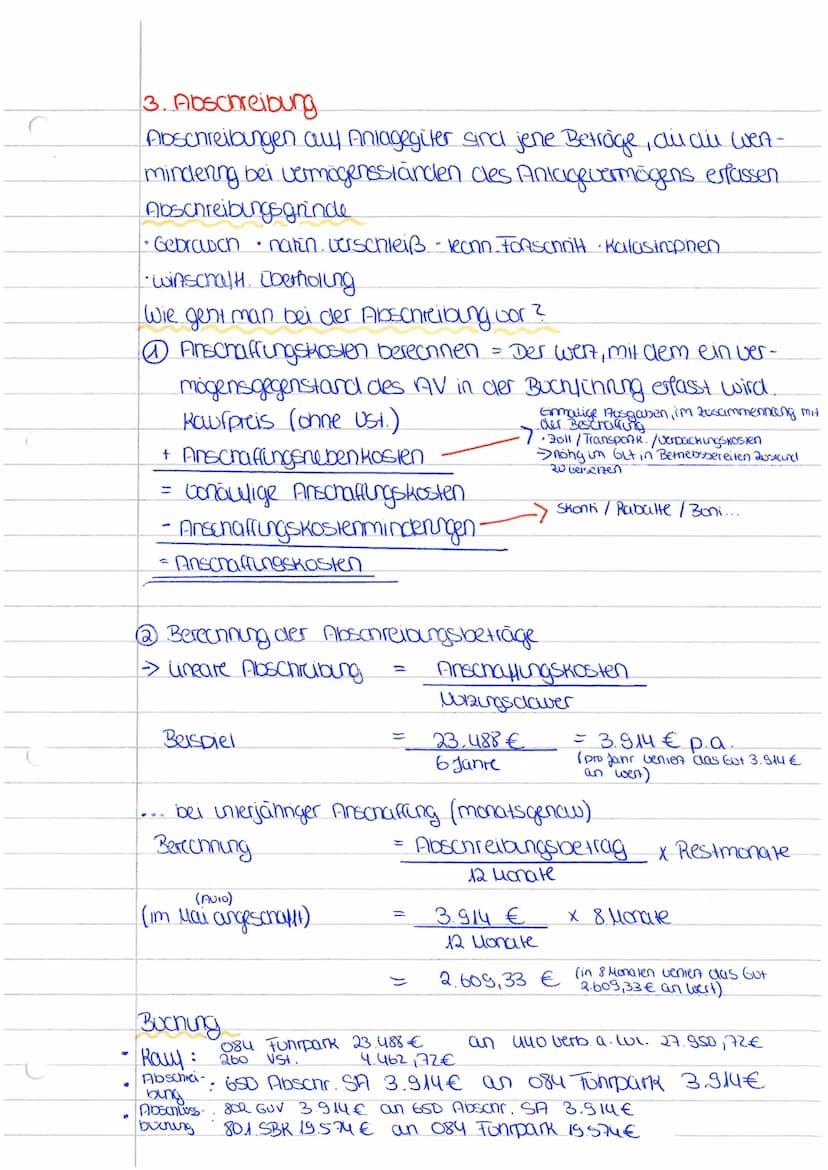 3. Abschreibung
Abschreibungen auf Anlagegüter sind jene Beträge, die die Wert-
minderung bei Vermögensständen des Anlagevermögens erfassen
Abschreibungsgründe
· Gebrauch · natürl. Verschleiß - techn. Fortschritt · Katastrophen
· wirtschaftl. Überholung
Wie geht man bei der Abschreibung vor?
① Anschaffungskosten berechnen = Der Wert, mit dem ein Ver-
mögensgegenstand des AV in der Buchführung erfasst wird.
Kaufpreis (ohne Ust.)
Einmalige Ausgaben, im Zusammenhang mit
der Beschaffung
· Zoll / Transport. / Verpackungskosten
→ nötig um Gut in Betriebsbereiten Zustand
zu versetzen
+ Anschaffungsnebenkosten
= vorläufige Anschaffungskosten
- Anschaffungskostenminderungen → Skonti / Rabatte / Boni...
= Anschaffungskosten
② Berechnung der Abschreibungsbeträge
→ Lineare Abschreibung = Anschaffungskosten
Nutzungsdauer
Beispiel = 23.488 € = 3.914 € p.a.
6 Jahre (pro Jahr verliert das Gut 3.914 €
an Wert)
... bei unterjähriger Anschaffung (monatsgenau)
Berechnung = Abschreibungsbetrag x Restmonate
12 Monate
(Auto)
(im Mai angeschafft) = 3.914 € x 8 Monate
12 Monate
= 2.609,33 € (in 8 Monaten verliert das Gut
2.609,33€ an Wert)
Buchung
• Kauf: 084 Fuhrpark 23.488 € an 440 Verb. a. LuL. 27.950,72€
260 VSt. 4.462,72€
• Abschrei-
bung : 650 Abschr. SA 3.914€ an 084 Fuhrpark 3.914€
• Abschluss- : 802 GUV 3.914€ an 650 Abschr. SA 3.914€
buchung 801 SBK 19.574€ an 084 Fuhrpark 19.574€